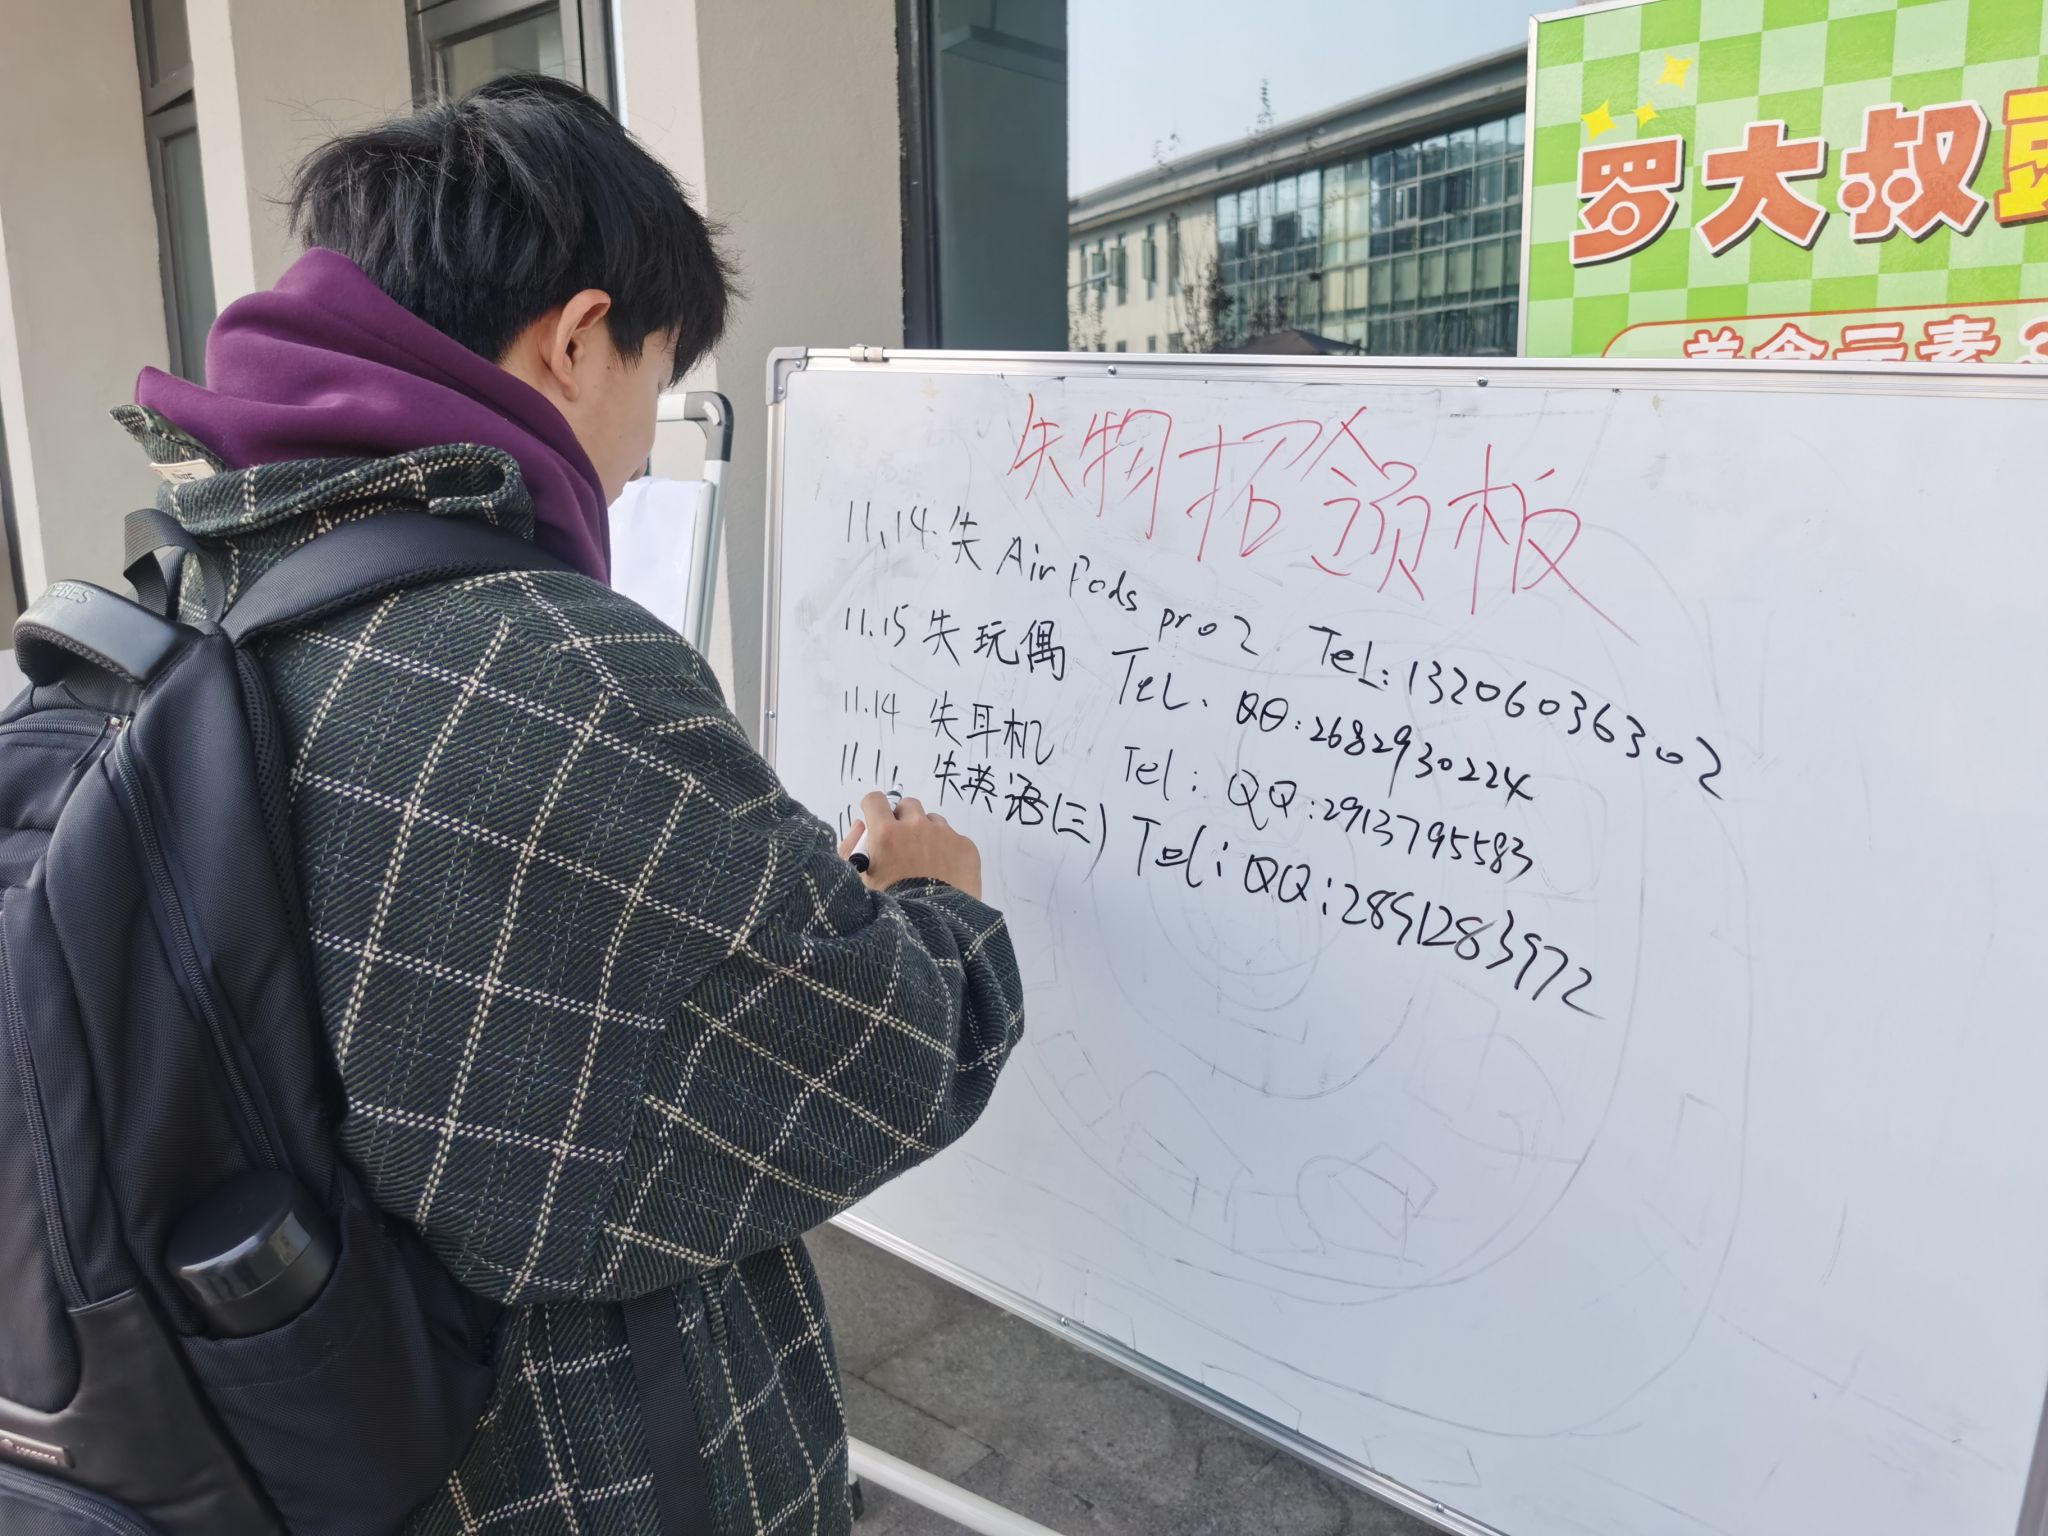 罗大叔
美食元素
失物招领板
11.14: 失 AirPods pro2 Tel: 13206036302
11.15 失玩偶 Tel: QQ: 2682930224
11.14 失耳机 Tel: QQ: 2913795583
失英语(三) Tel: QQ: 2891283972